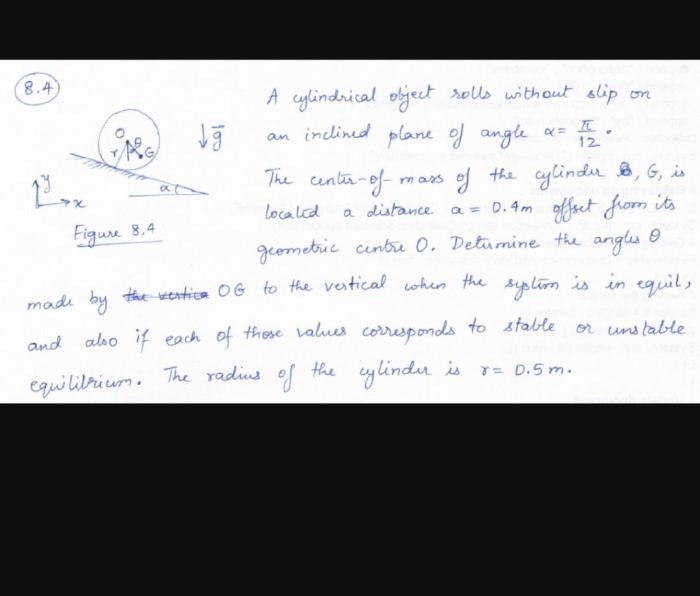 8.4
A cylindrical object rolls without slip on
an inclined plane of angle α = π/12.
The center-of-mass of the cylinder, G, is
located a distance a = 0.4m offset from its
geometric centre O. Determine the angles θ
made by the vertica OG to the vertical when the system is in equil,
and also if each of those values corresponds to stable or unstable
equilibrium. The radius of the cylinder is r = 0.5m.
O θ
r G
g
α
y
x
Figure 8.4